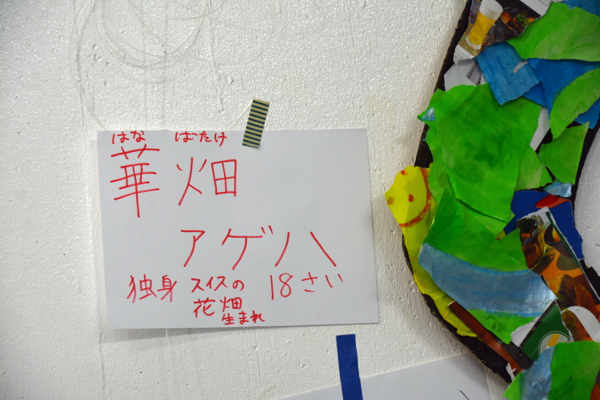 はな ばたけ
華 畑
アゲハ
独身 スイスの 18さい
花畑
生まれ